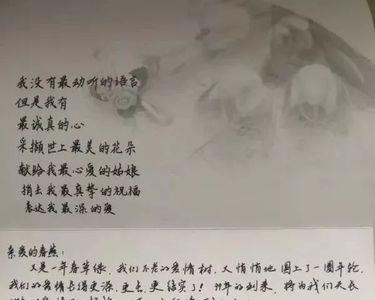 我没有最动听的语言
但是我有
最诚真的心
采撷世上最美的花朵
献给我最心爱的姑娘
捎去我最真挚的祝福
表达我最深的爱
亲爱的春燕：
又是一年春草绿，我们不老的爱情树，又悄悄地圈上了一圈年轮，
我们的爱情长得更深，更多，更结实了！99年的到来，将为我们天长